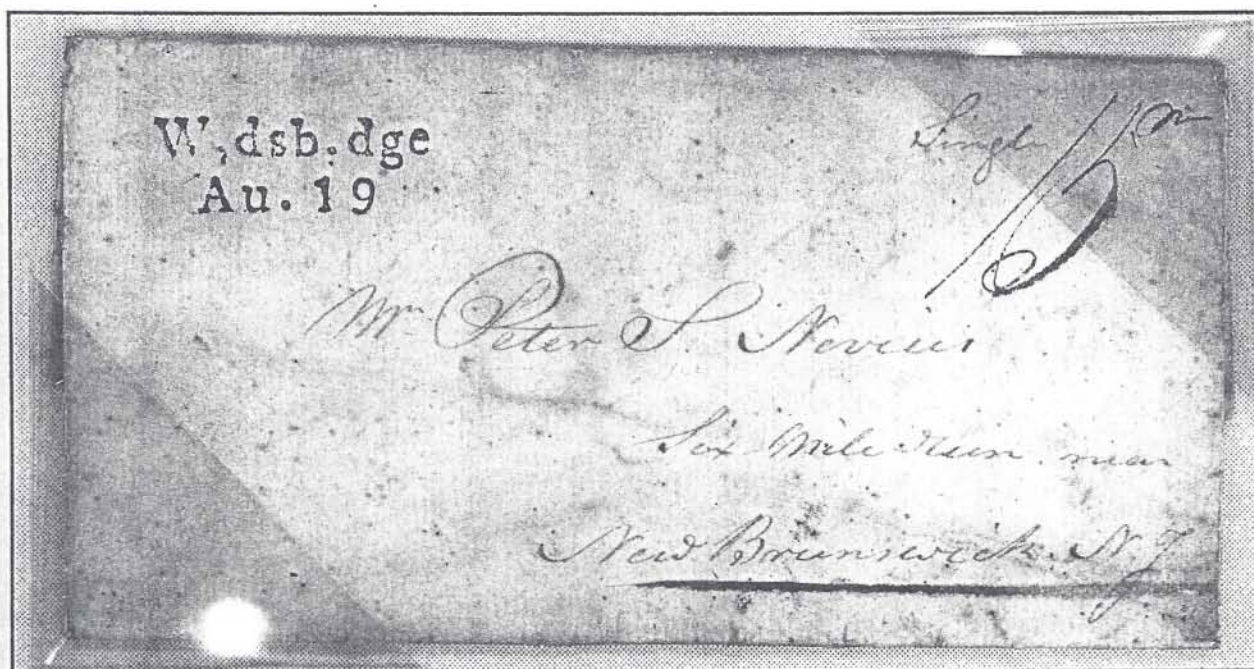 W.dsb.dge
Au. 19
Single
Mr Peter S. Nevius
Six Mile Run near
New Brunswick N.J